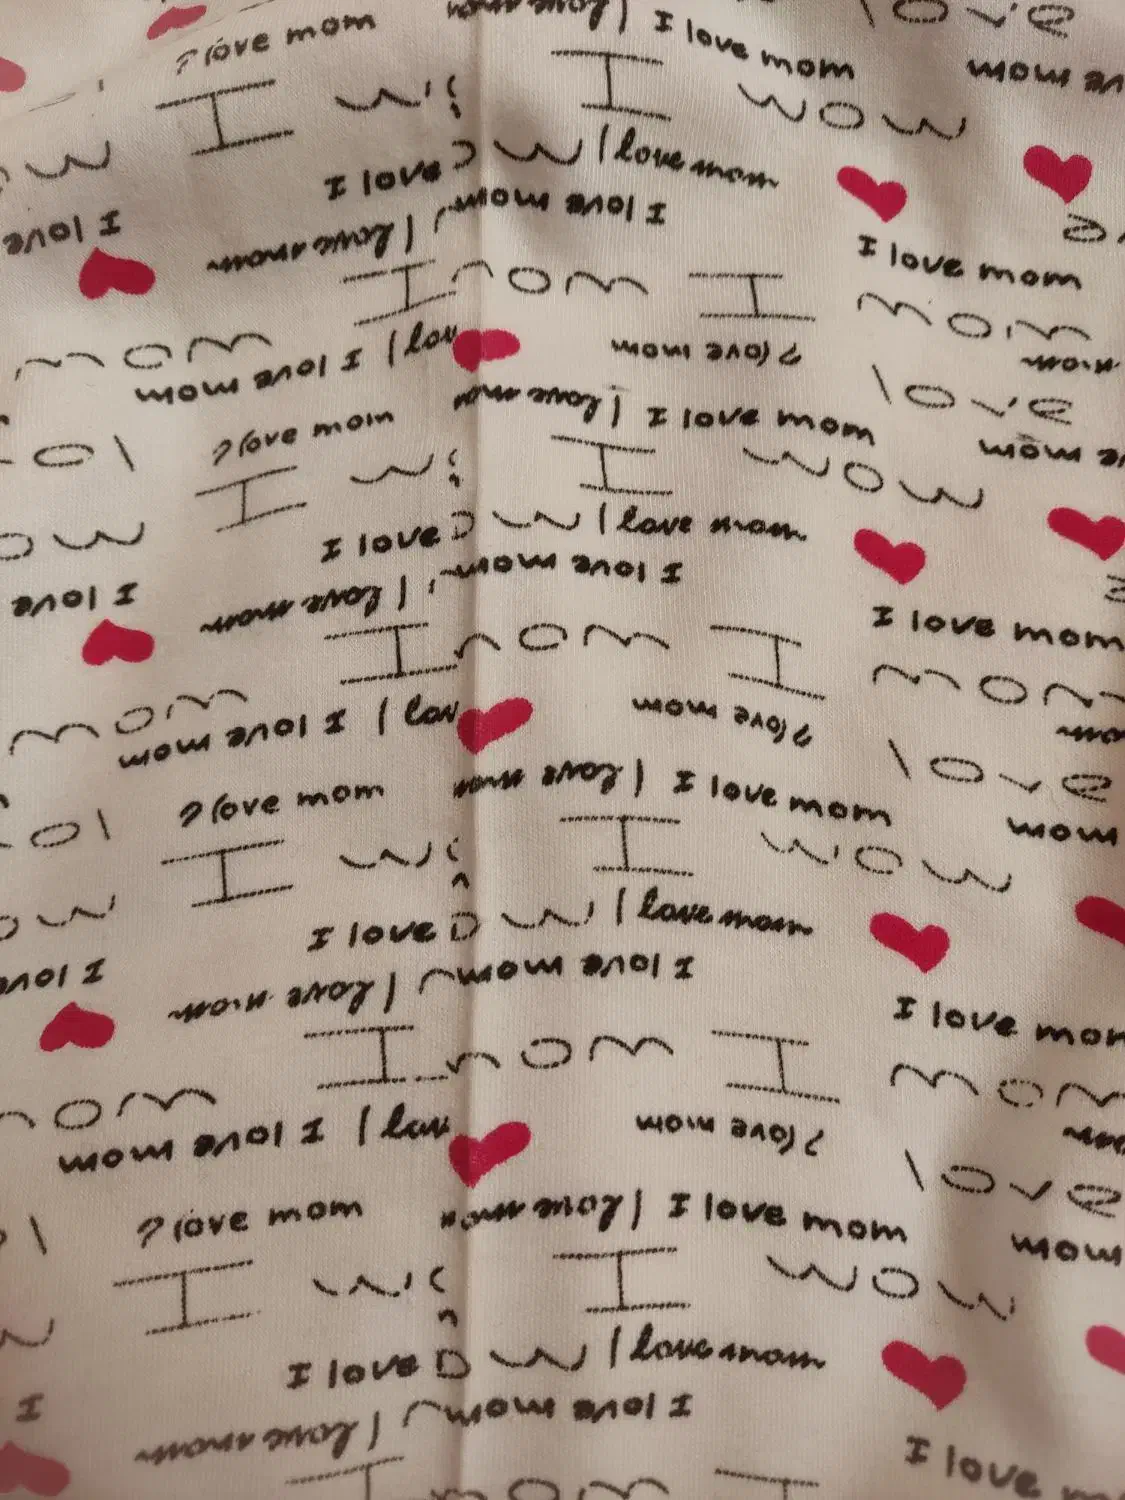 I love mom
love mom
I love mom
love
mom
I
I
mom
I love
I love mom
I love mom
I love
I love mom
I love mom
I
mom
I
mom
mom
I love mom
I lov
love mom
love
I love mom
I love mom
love mom
I
I
mom
I love
I love mom
I love mom
I love
I love mom
I love mom
I
mom
I
mom
mom
I love mom
I lov
love mom
love
I love mom
I love mom
mom
I
I
mom
I love
I love mom
I love mom
I love
I love mom
I love mom
I
mom
I
mom
I love mom
love mom
love
I love mom
mom
I
I
mom
I love
I love mom
I love mom
I
I love mom
I love
mom